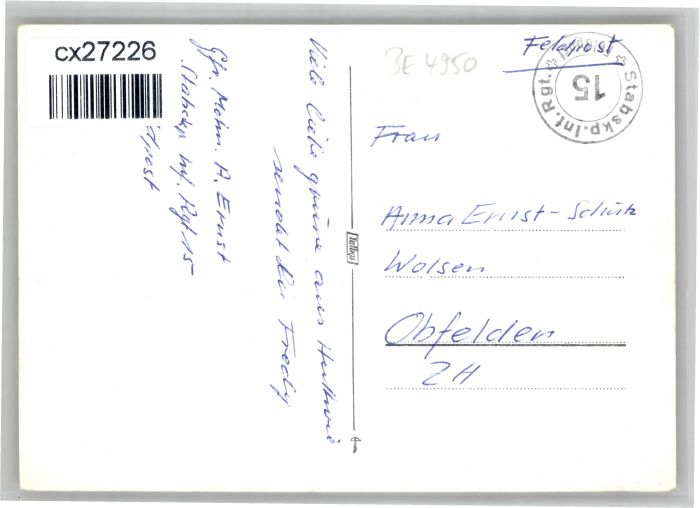 cx27226
BE 4950
Feldpost
Stabskp.Inf.Rgt.
15
Viele liebe Grüsse aus Huttwil
sendet dir Fredy
Gfr. Motm. A. Ernst
Stabskp Inf. Rgt 15
Frau
Anna Ernst-Schütz
Wolsen
Obfelden
ZH